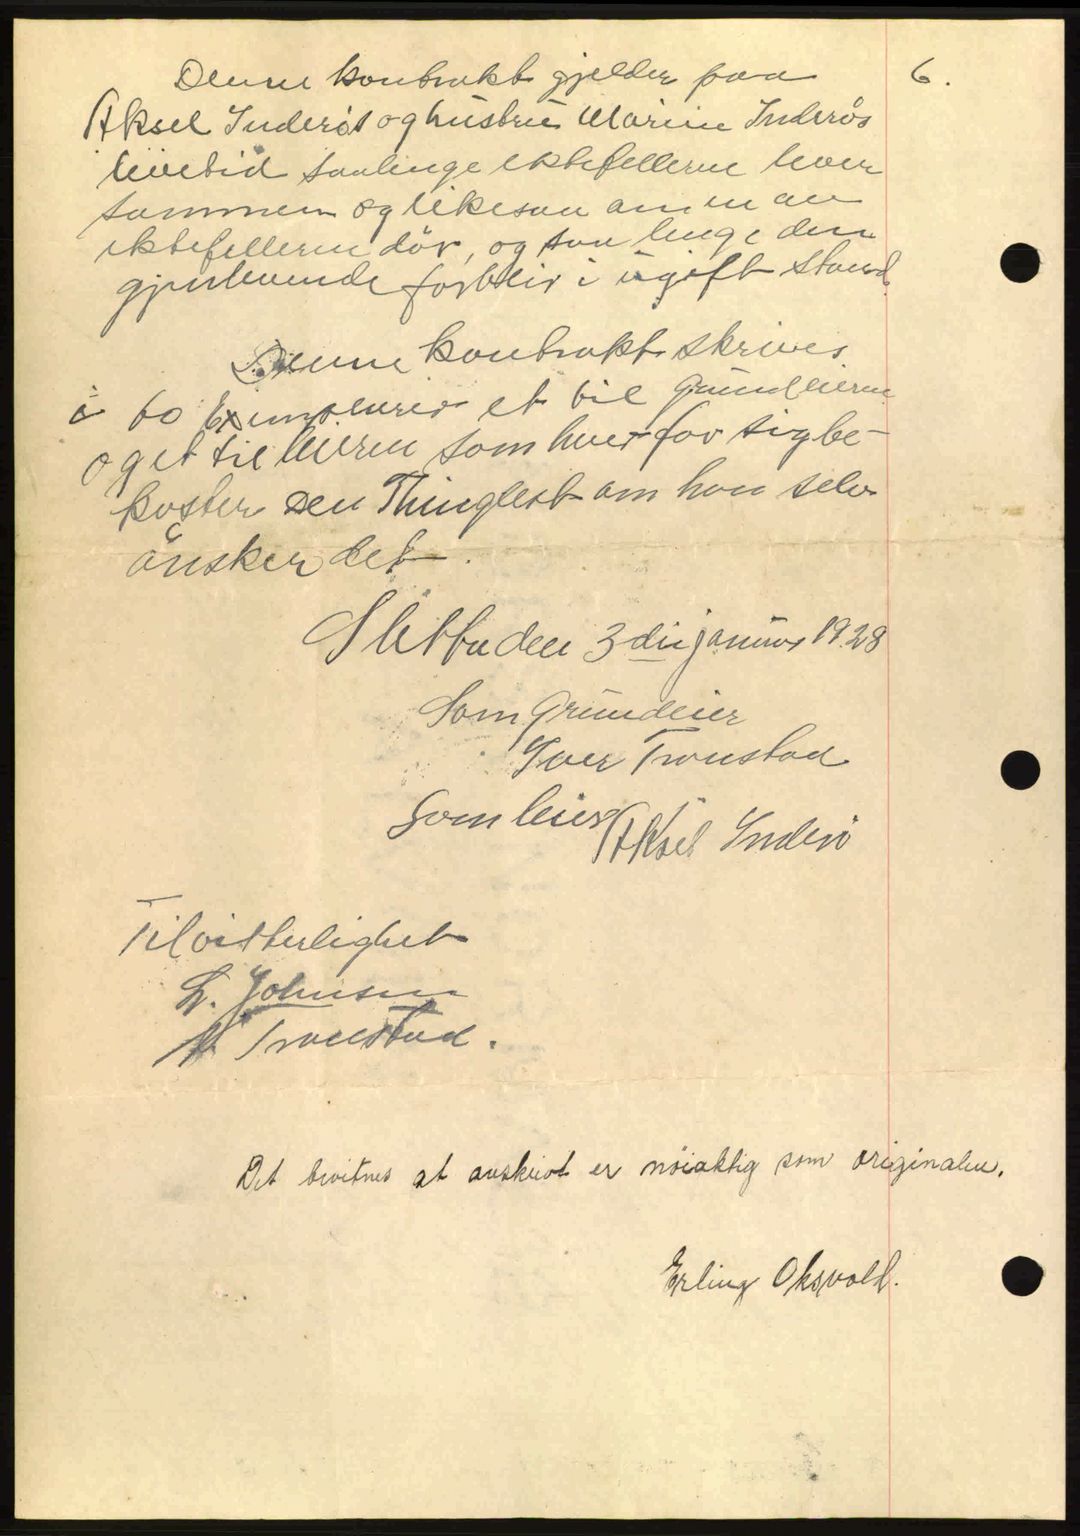 6.
Denne kontrakt gjelder paa
Aksel Inderøs og hustru Marin Inderøs
livetid saalenge ektefellerne lever
sammen og likesaa om en av
ektefellerne dør, og saa lenge den
gjenlevende forblir i ugift stand
Denne kontrakt skrives
i to Exemplarer et til Grundeieren
og et til leieren som hver for sig be-
koster den Thinglest om han selv
ønsker det.
den 3die januar 1928
Som Grundeier
Iver Tronstad
Som leier Aksel Inderø
Til vitterlighet
L. Johnsen
Tronstad.
Det bevitnes at avskrivt er nøiaktig som originalen.
Erling Oksvold.